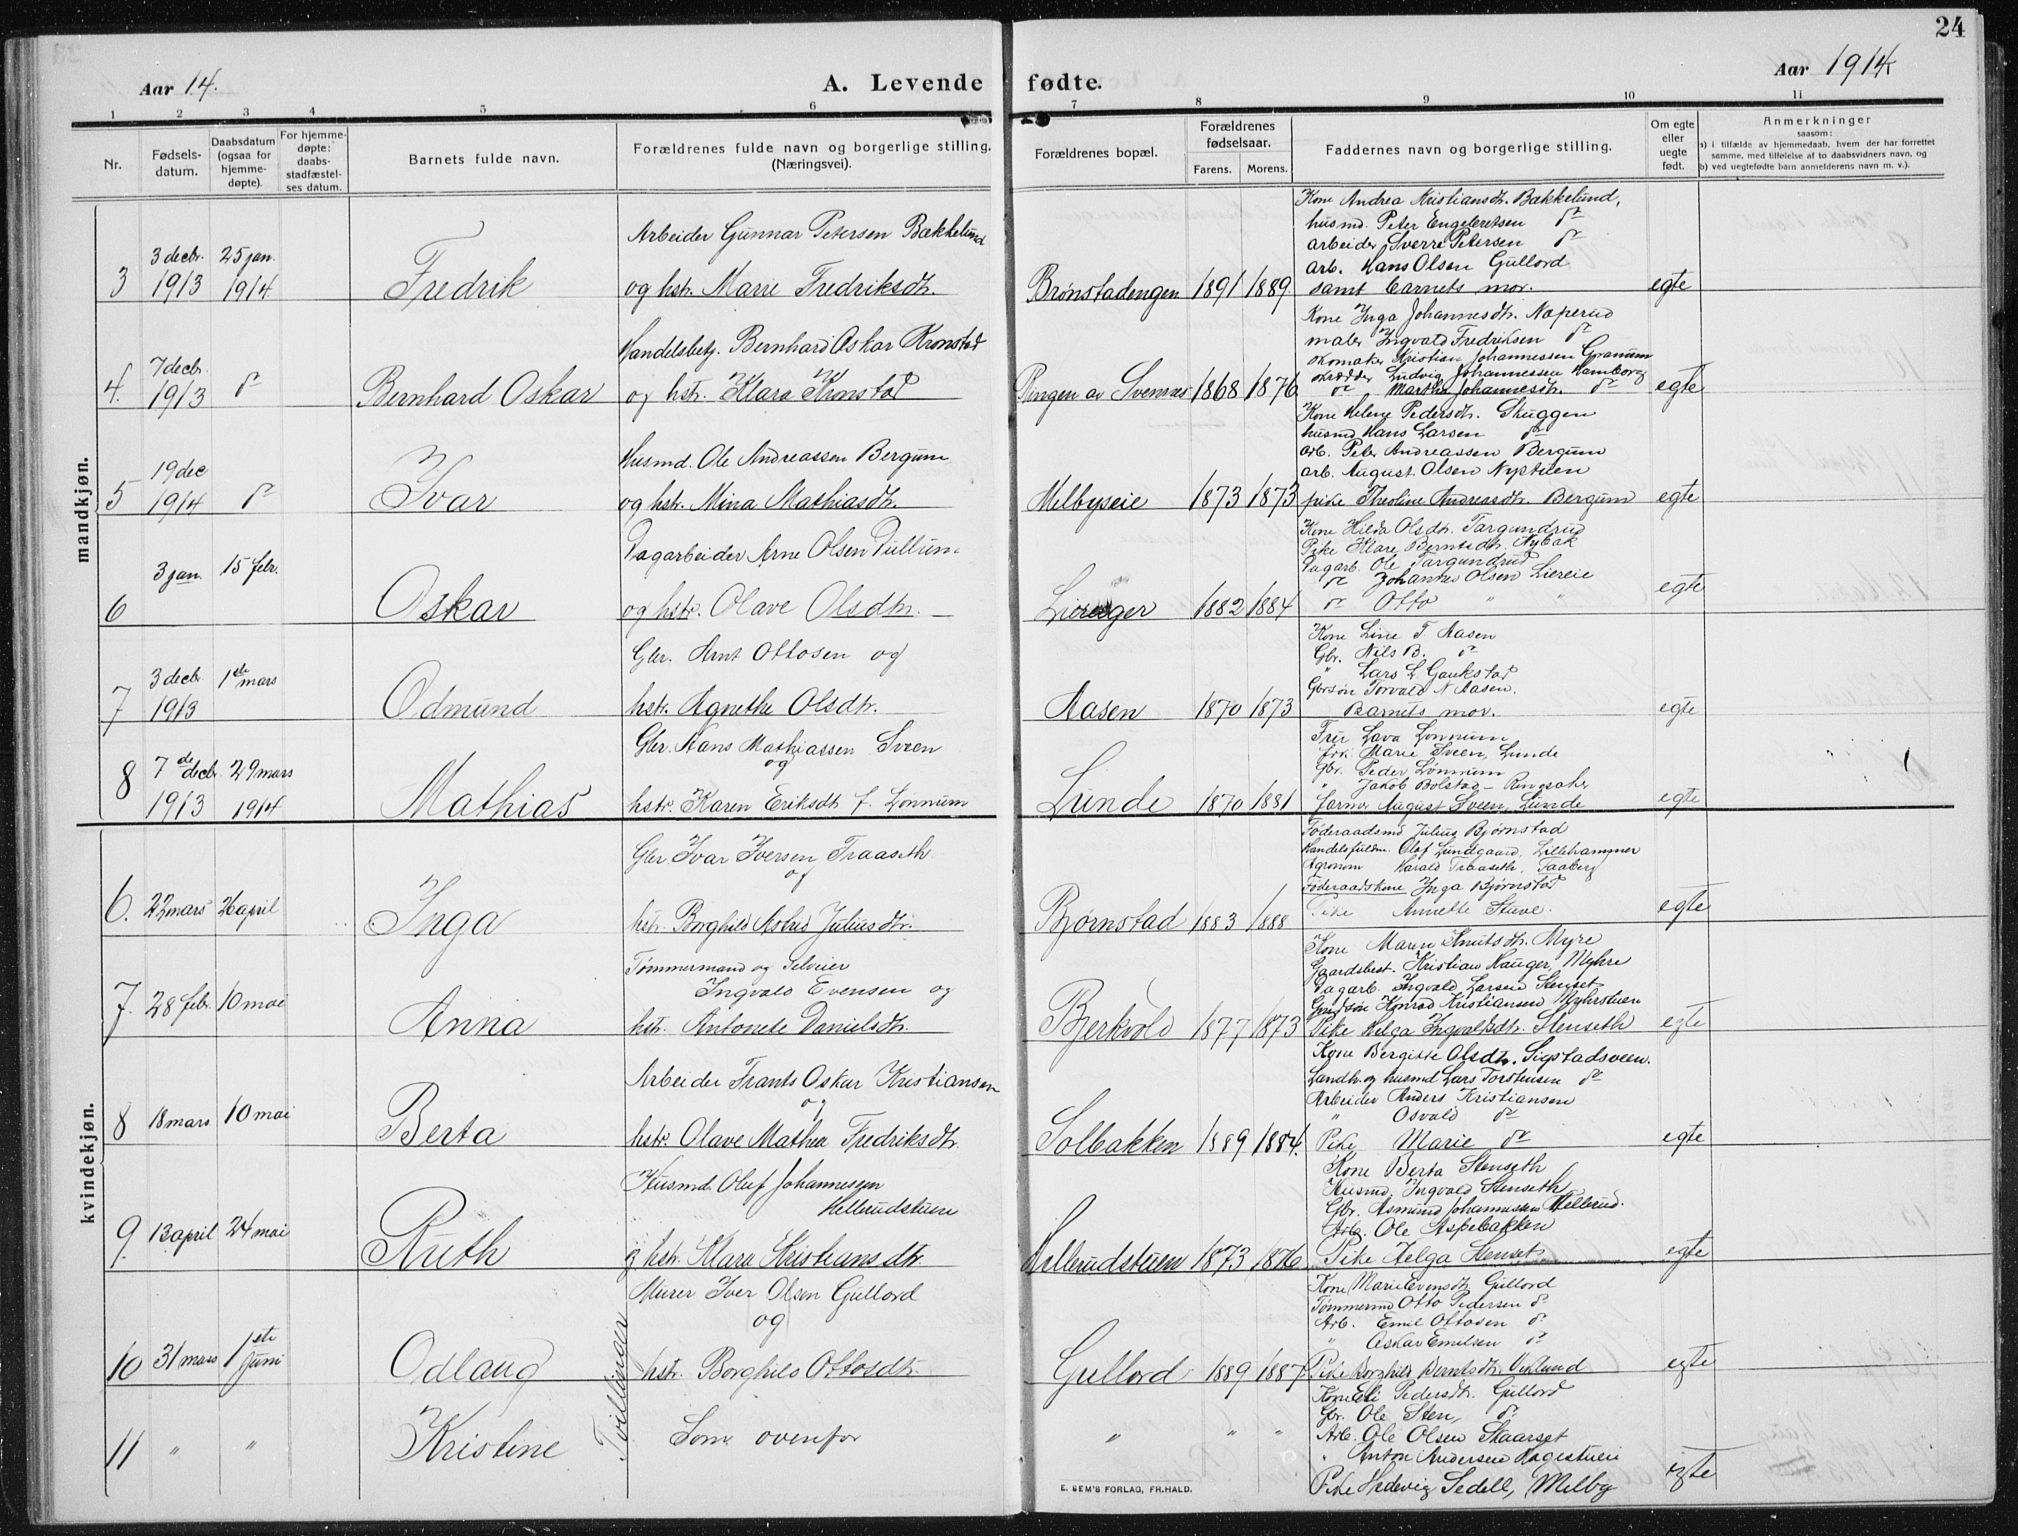 24
Aar 14.
A. Levende fødte.
Aar 1914
1 2 3 4 5 6 7 8 9 10 11
Nr.
Fødsels-
datum.
Daabsdatum
(ogsaa for
hjemme-
døpte).
For hjemme-
døpte:
daabs-
stadfæstel-
ses datum.
Barnets fulde navn.
Forældrenes fulde navn og borgerlige stilling.
(Næringsvei).
Forældrenes bopæl.
Forældrenes
fødselsaar.
Farens. Morens.
Faddernes navn og borgerlige stilling.
Om egte
eller
uegte
født.
Anmerkninger
saasom:
a) i tilfælde av hjemmedaab, hvem der har forrettet
samme, med tilføielse af to daabsvidners navn, og
b) ved uegtefødte barn anmelderens navn m. v.).
mandkjøn.
3
3 decbr.
1913
25 jan.
1914
Fredrik
Arbeider Gunnar Petersen Bækkelund
og hstr. Marie Fredriksdtr.
Brønstadengen 1891 1889
Kone Andrea Kristiansdt. Bækkelund,
husmd. Peter Engebretsen do
arbeider Sverre Petersen do
arb. Hans Olsen Gullord
samt barnets mor.
egte
4.
7 decbr.
1913
do
Bernhard Oskar
Handelsbetj. Bernhard Oskar Kronstad
og hstr. Klara Kronstad
Ringen av Svennæs 1868 1876
Kone Inga Johannesdtr. Naperud
maler Ingvald Fredriksen do
skomaker Kristian Johannessen Granum
skrædder Ludvig Johannessen Hamborg
do Martha Johannesdtr. do
egte
5
19 dec
1914
do
Ivar
Husmd. Ole Andreassen Bergum
og hstr. Mina Mathiasdtr.
Melbyseie 1873 1873
Kone Helene Pedersdtr. Skuggen
husmd Hans Larsen do
arb. Peter Andreassen Bergum
arb. August Olsen Nystuen
pike Theoline Andreasdtr. Bergum
egte
6
3 jan.
15 febr.
Oskar
Dagarbeider Arne Olsen Dullum
og hstr. Olave Olsdtr.
1882 1884
Kone Hilda Olsdtr. Targundrud
Pike Klare Berntsdtr. Nybak
Dagarb. Ole Targundrud
do Johannes Olsen Liereie
do Otto " "
egte
7
3 decbr
1913
1ste mars
Odmund
Gbr. Arnt Ottosen og
hstr. Agnethe Olsdtr.
Aasen 1870 1873
Kone Line T. Aasen
Gbr. Nils B. do
" Lars L Gaukstad
Gbrsøn Torvald N Aasen.
Barnets mor.
egte
8
7de decbr
1913
29 mars
1914
Mathias
Gbr. Hans Mathiassen Sveen
og
hstr. Karen Eriksdt f. Lønnum
Lunde 1870 1881
Frue Lava Lønnum
frk. Marie Sveen, Lunde
Gbr. Peder Lønnum
" Jakob Bolstad - Ringsaker
farmer August Sveen, Lunde
egte
kvindekjøn.
6.
22 mars
26 april
Inga
Gbr Ivar Iversen Traaseth
og
hstr. Borghild Astrid Juliusdtr.
Bjørnstad 1883 1888
Føderaadsmd Julius Bjørnstad
Handelsfuldm. Olaf Lundgaard, Lillehammer
Agronom Harald Traaseth, Faaberg
Føderaadskone Inga Bjørnstad
Pike Annette Stuve.
egte
7.
28 febr.
10 mai
Anna
Tømmermand og Selveier
Ingvald Evensen og
hstr. Antonete Danielsdtr.
Bjerkvold 1877 1873
Kone Maren Knutsdtr. Myre
Gaardsbest. Kristian Hauger, Myhre
Dagarb. Ingvald Larsen Stenset
Grdsøn Konrad Kristiansen Myhrstuen
Pike Helga Ingvaldsdtr. Stenseth
egte
8
18 mars
10 mai
Berta
Arbeider Frants Oskar Kristiansen
og
hstr. Olave Mathea Fredriksdtr.
Solbakken 1889 1884.
Kone Bergitte Olsdtr. Sigstadsveen.
Landh. og husmd Lars Torstensen do
Arbeider Anders Kristiansen
" Osvald do
Pike Marie do
egte
9.
13 april
24 mai
Ruth
Husmd. Oluf Johannessen
Hellerudstuen
og hstr. Klara Kristiansdtr.
Hellerudstuen 1873 1876
Kone Berta Stenseth
Husmd. Ingvald Stenseth
Gbr. Asmund Johannessen Hellerud.
Arb. Ole Aspebakken
Pike Helga Stenset
egte
10
31 mars
1ste
Juni
Odlaug
Tvillinger
Murer Iver Olsen Gullord
og
hstr. Borghild Ottosdtr.
Gullord 1889 1887
Kone Marie Evensdtr Gullord
Tømmermd Otto Pedersen do
Arb. Emil Ottosen do
" Oskar Emilsen do
Pike Borghild Berntsdtr. Viklund
egte
11
" "
Kristine
Som ovenfor
" " "
Kone Eli Pedersdtr. Gullord
Gbr. Ole Sten, do
Arb. Ole Olsen Skaarset
" Anton Andersen Hagestuen
Pike Hedevig Sedell, Melby
egte
E. SEM'S FORLAG, FR.HALD.